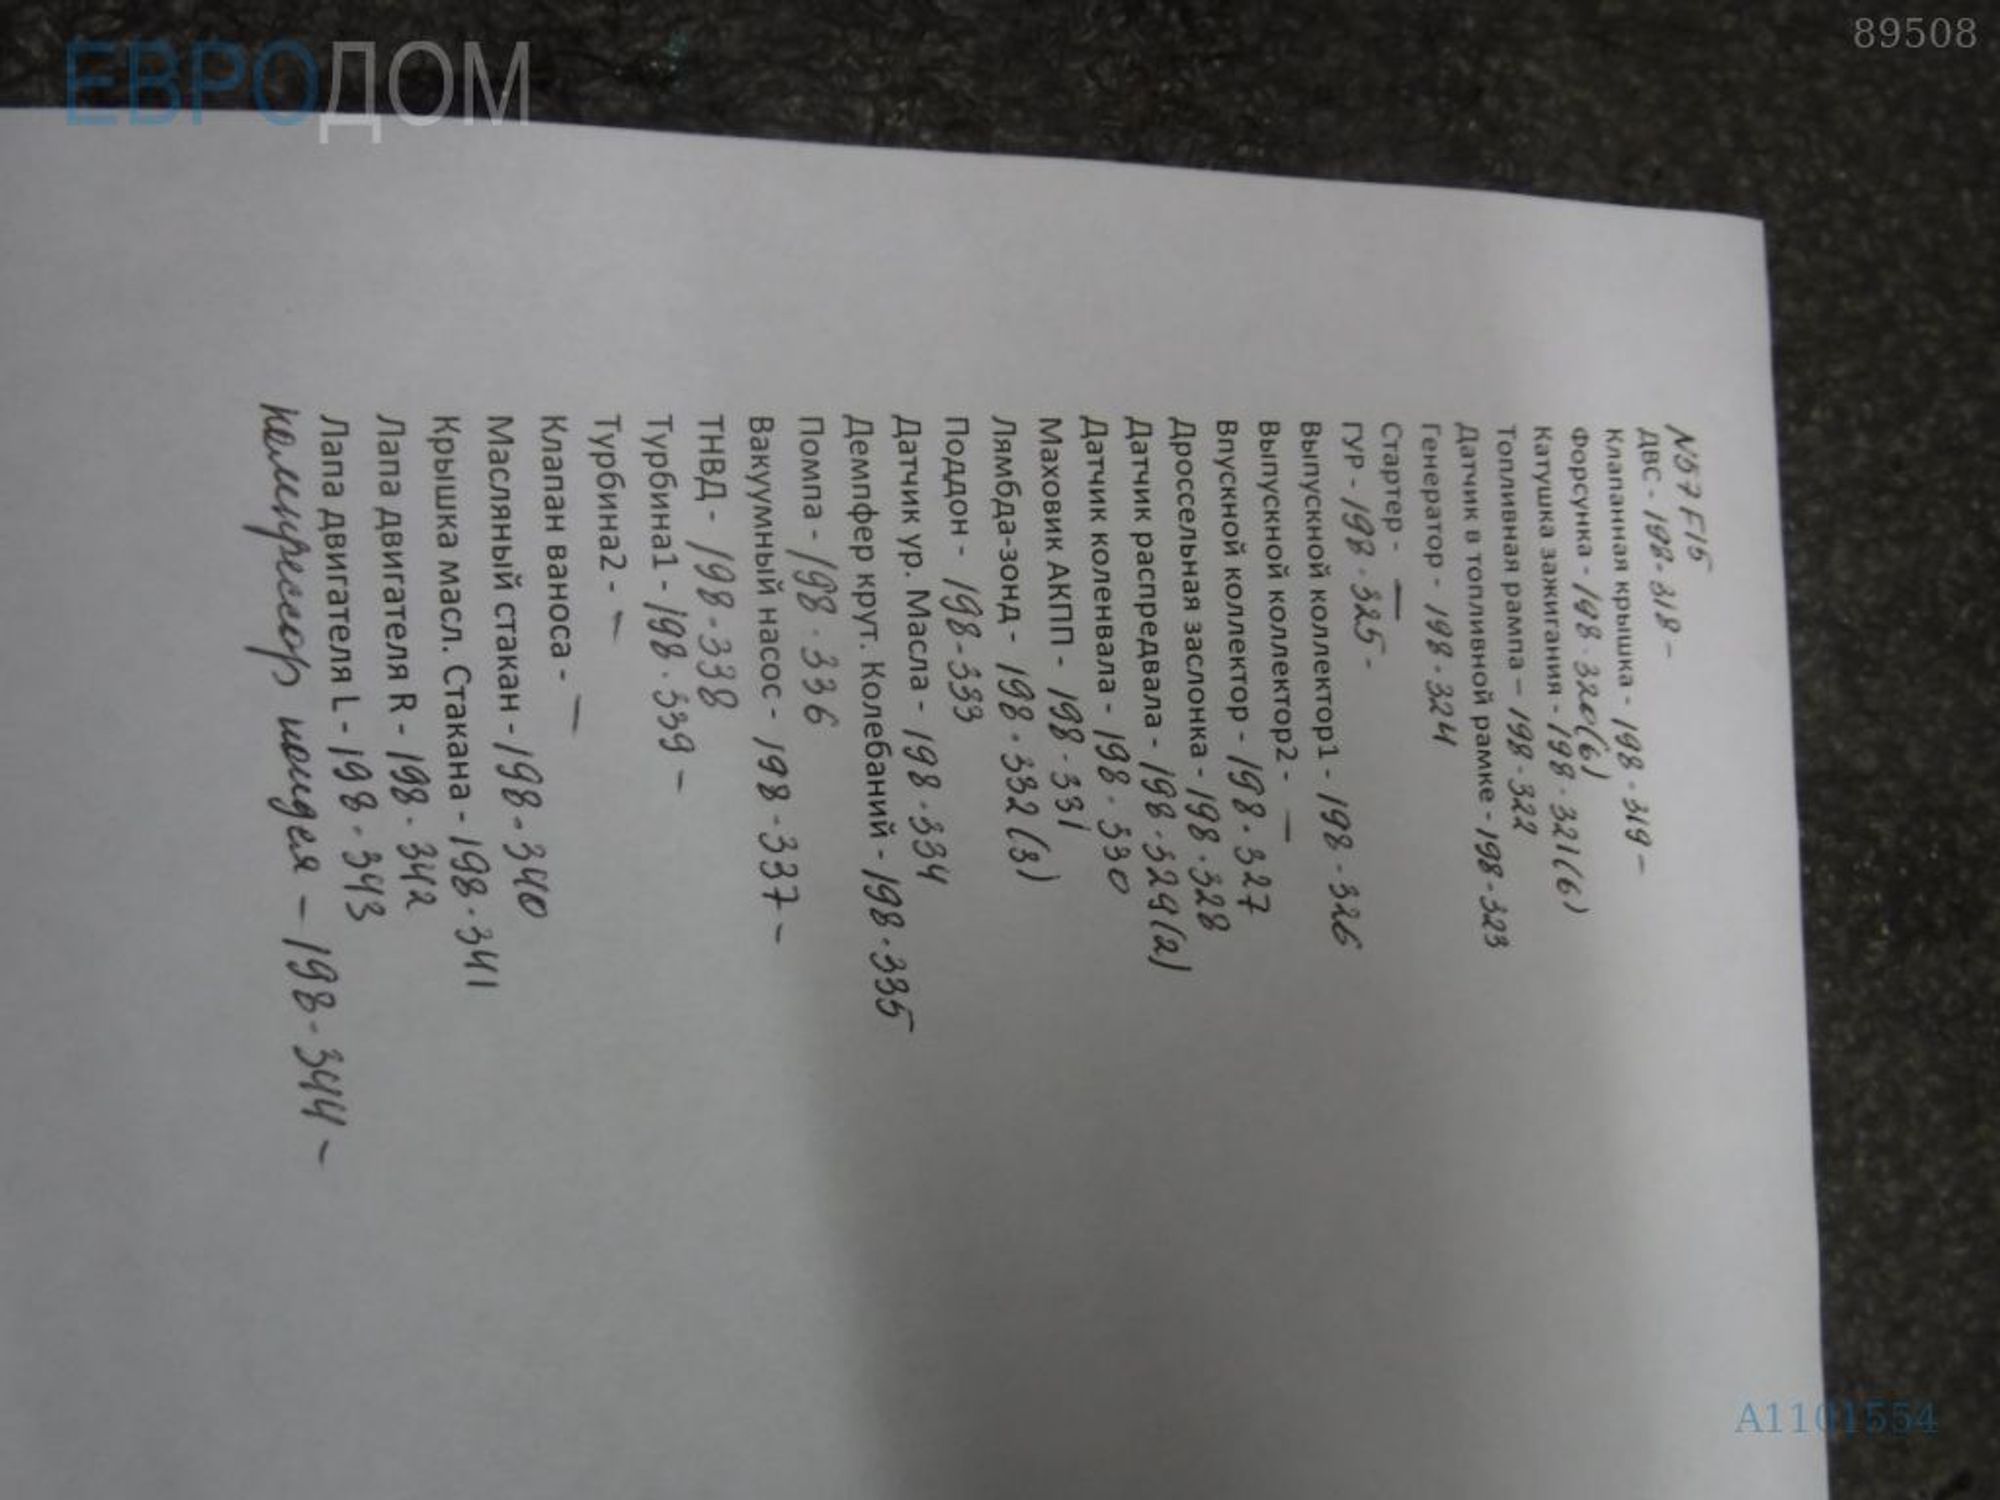 ЕВРОДОМ
89508
N57 F15
ДВС - 198-318 -
Клапанная крышка - 198-319 -
Форсунка - 198-320(6)
Катушка зажигания - 198-321(6)
Топливная рампа – 198-322
Датчик в топливной рамке - 198-323
Генератор - 198-324
Стартер - —
ГУР - 198-325 -
Выпускной коллектор1 - 198-326
Выпускной коллектор2 - —
Впускной коллектор - 198-327
Дроссельная заслонка - 198-328
Датчик распредвала - 198-329(2)
Датчик коленвала - 198-330
Маховик АКПП - 198-331
Лямбда-зонд - 198-332(3)
Поддон - 198-333
Датчик ур. Масла - 198-334
Демпфер крут. Колебаний - 198-335
Помпа - 198-336
Вакуумный насос - 198-337 -
ТНВД - 198-338
Турбина1 - 198-339 -
Турбина2 - —
Клапан ваноса - —
Масляный стакан - 198-340
Крышка масл. Стакана - 198-341
Лапа двигателя R - 198-342
Лапа двигателя L - 198-343
компрессор кондея — 198-344 -
A1101554